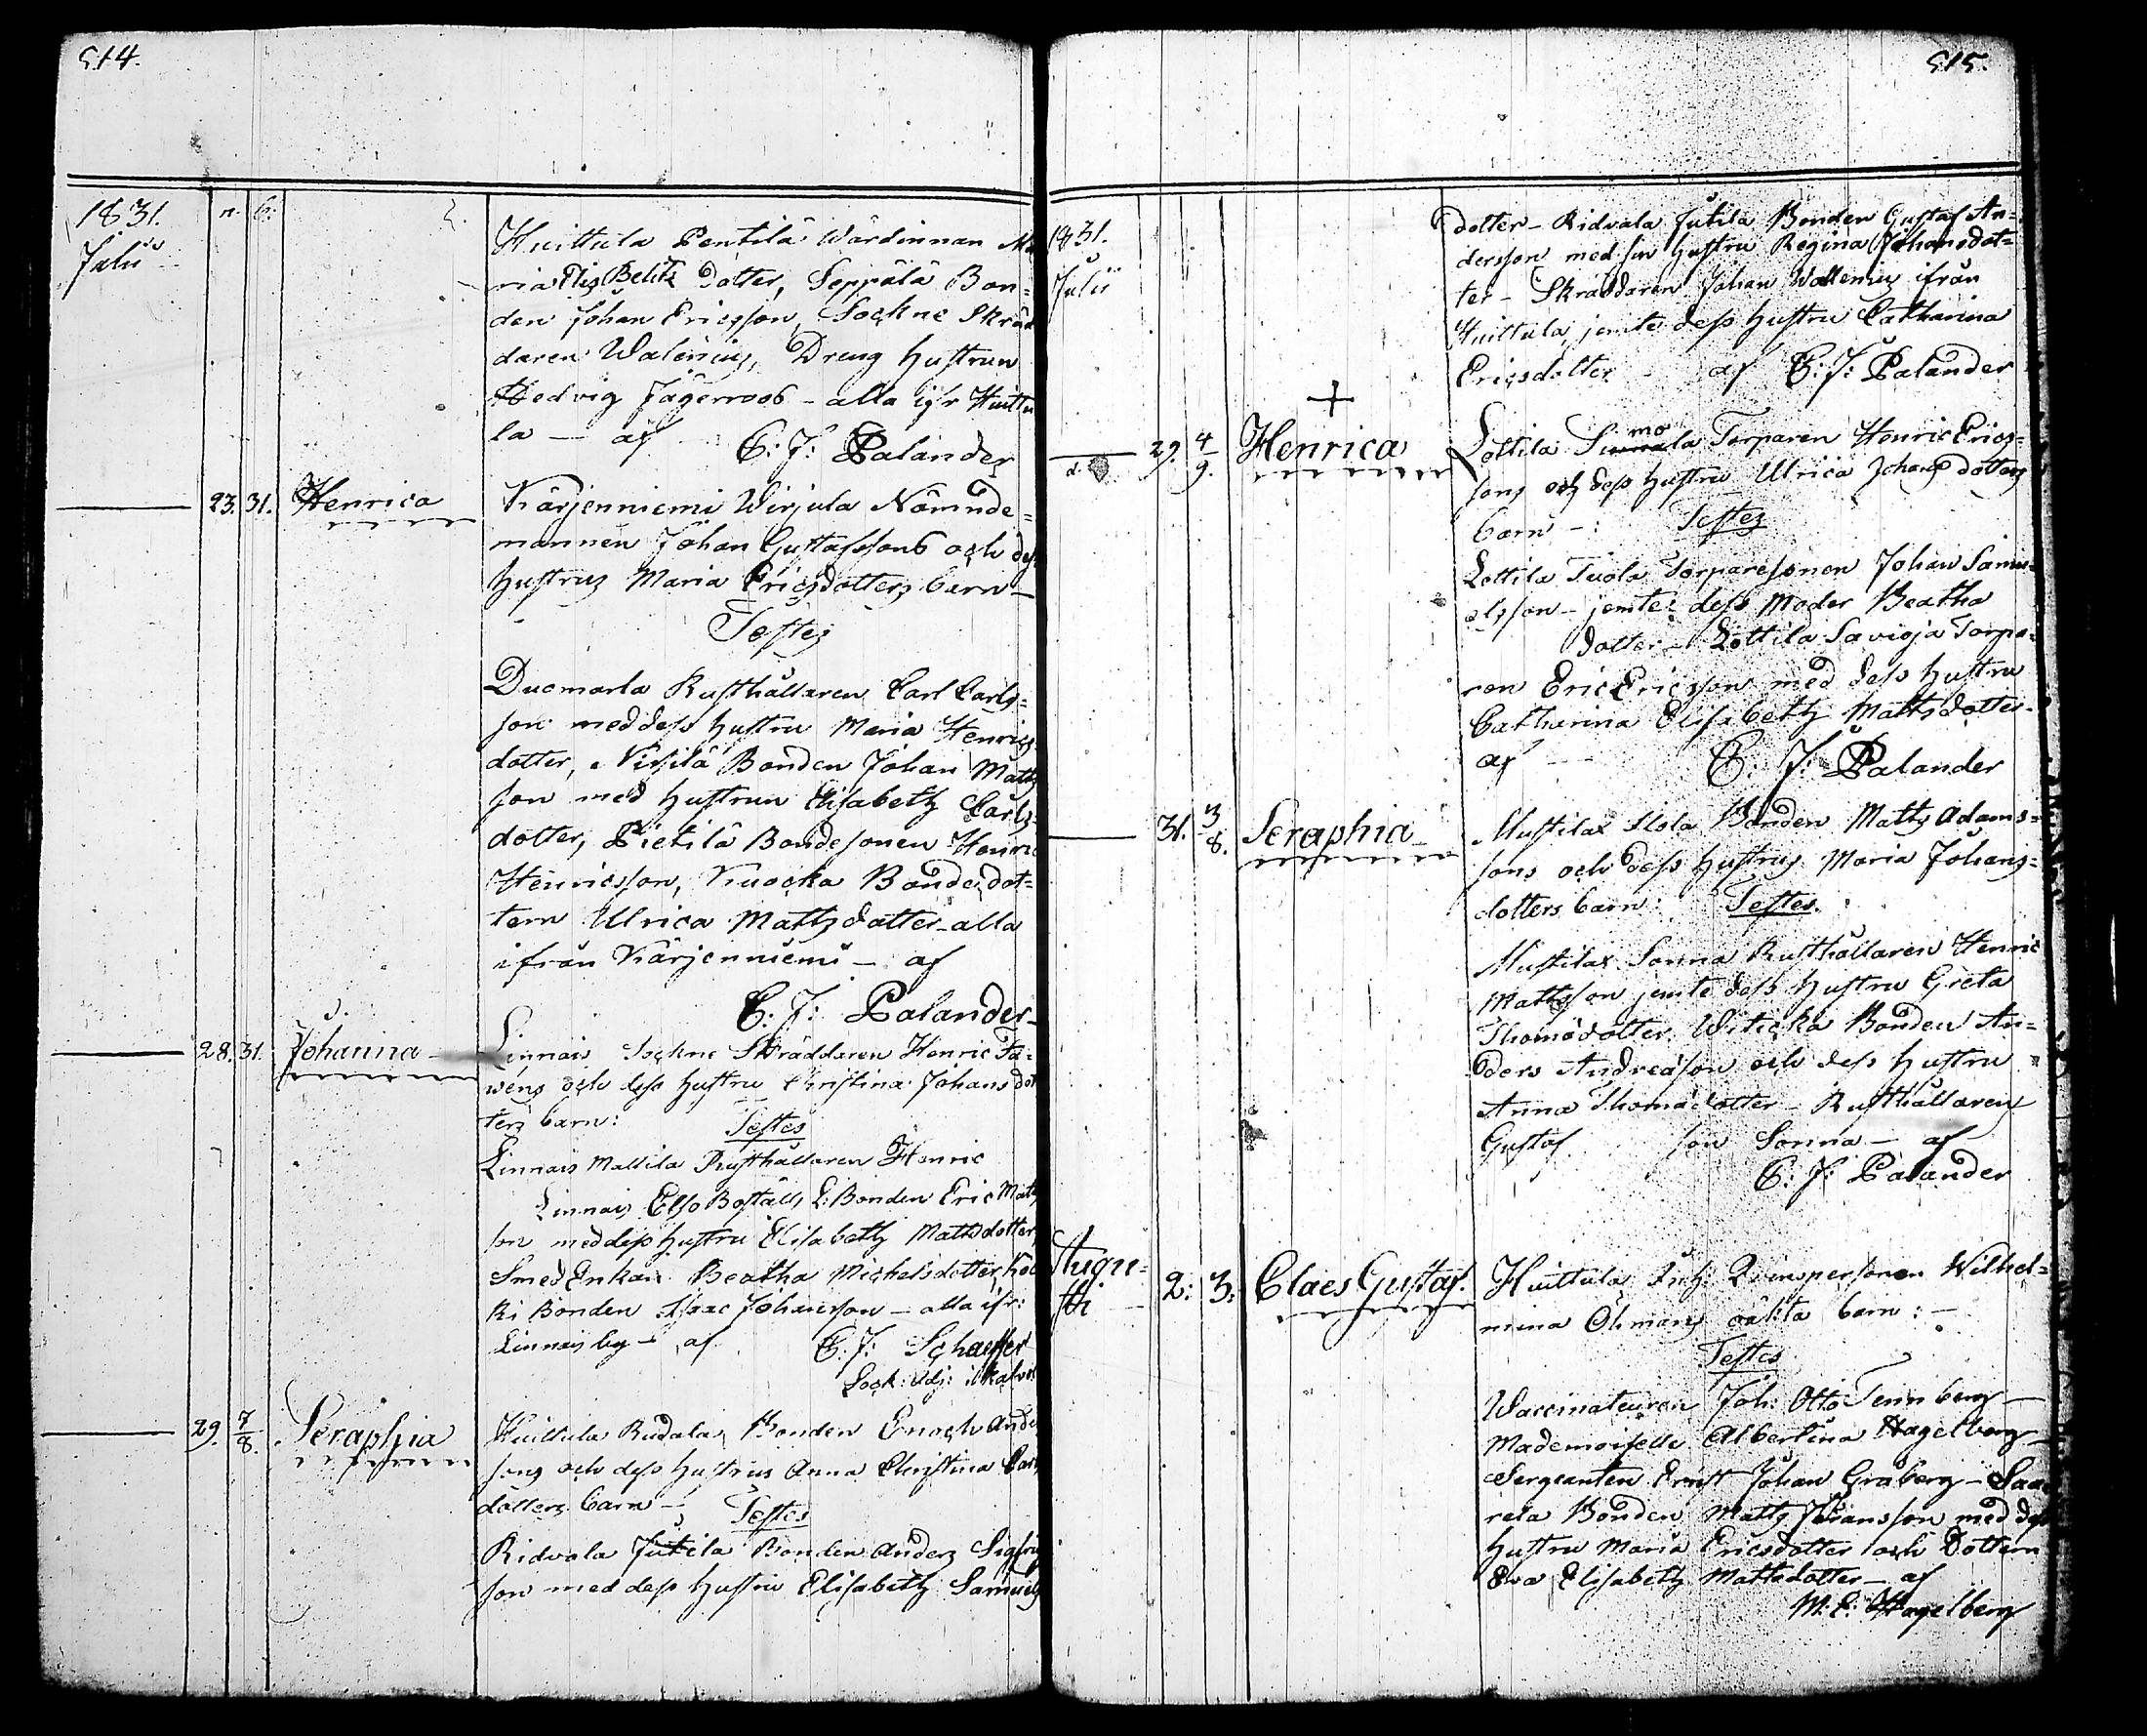 514.
1831. n. b:
Julii
Huittula Pentilä Wärdinnan Ma
ria Elis Belitz dotter, Seppälä Bon=
den Johan Ericsson, Sockne Skräd
daren Walenius, Dreng hustrun
Hedvig Jägerroos - alla ifr Huittu
la - af C: J: Palander
23. 31. Henrica Kärjenniemi Wirjula Nämnde=
mannen Johan Gustafssons och dess
hustrus Maria Ericsdotters barn -
Testes
Ducmarla Rusthållaren Carl Carls=
son med dess hustru Maria Henrics
dotter, Bonden Johan Matts
son med hustrun Elisabeth Carls
dotter, Pietilä Bondesonen Henric
Henricsson, Kuocka Bondedot=
tern Ulrica Mattsdotter - alla
ifrån Kärjenniemi - af
C. J: Palander -
28. 31. Johanna - Linnais Sockne Skräddaren Henric Fa=
wens och dess hustru Christina Johans dot
ters barn: Testes
Linnais Mattila Rusthållaren Henric
Linnais Elso Boställs L: Bonden Eric Matts
son med dess hustru Elisabeth Mattsdotter,
Smed Enkan Beatha Michelsdotter,
Bonden Isaac Johansson - alla ifr:
Linnais by - af C: J: Schaeffer
Sock: Adj: i Kalvola
29. 7/8. Seraphia Huittula Rudala Bonden Enoch Anders
sons och dess hustrus Anna Christina Carls
dotters barn - Testes
Ridvala Jutila Bonden Anders Sigfrids
son med dess hustru Elisabeth Samuels
515.
1831.
Julii
dotter - Ridvala Jutila Bonden Gustaf An=
dersson med sin hustru Regina Johansdot=
ter - Skräddaren Johan Wallenius ifrån
Huittula, jemte dess hustru Catharina
Ericsdotter - af C: J: Palander
+
d. 29. 4/9. Henrica Lottila Simola Torparen Henric Erics=
sons och dess hustru Ulrica Johans dotters
barn -: Testes
Lottila Tuola Torparesonen Johan Samu=
elsson - jemte dess moder Beatha
dotter - Lottila Savioja Torpa=
ren Eric Ericsson med dess hustru
Catharina Elisabeth Mattsdotter -
af C. J: Palander
31. 3/8. Seraphia Mustila Bonden Matts Adams=
sons och dess hustrus Maria Johans=
dotters barn: Testes.
Mustila Sonna Rusthållaren Henric
Mattsson jemte dess hustru Greta
Thomsdotter. Witicka Bonden An=
ders Andreasson och dess hustru
Anna Thomsdotter - Rusthållaren
Gustaf son Sonna - af
C. J: Palander
Augu=
sti 2: 3: Claes Gustaf. Huittula Inh: Qvinspersonen Wilhel=
mina Öhmans oäkta barn: -
Testes
Waccinateuren Joh: Otto Tennberg -
Mademoiselle Albertina Hagelberg -
Sergeanten Ernst Johan Graberg - Saa
rela Bonden Matts Johansson med dess
hustru Maria Ericsdotter och Dottern
Eva Elisabeth Mattsdotter - af
M: E: Hagelberg